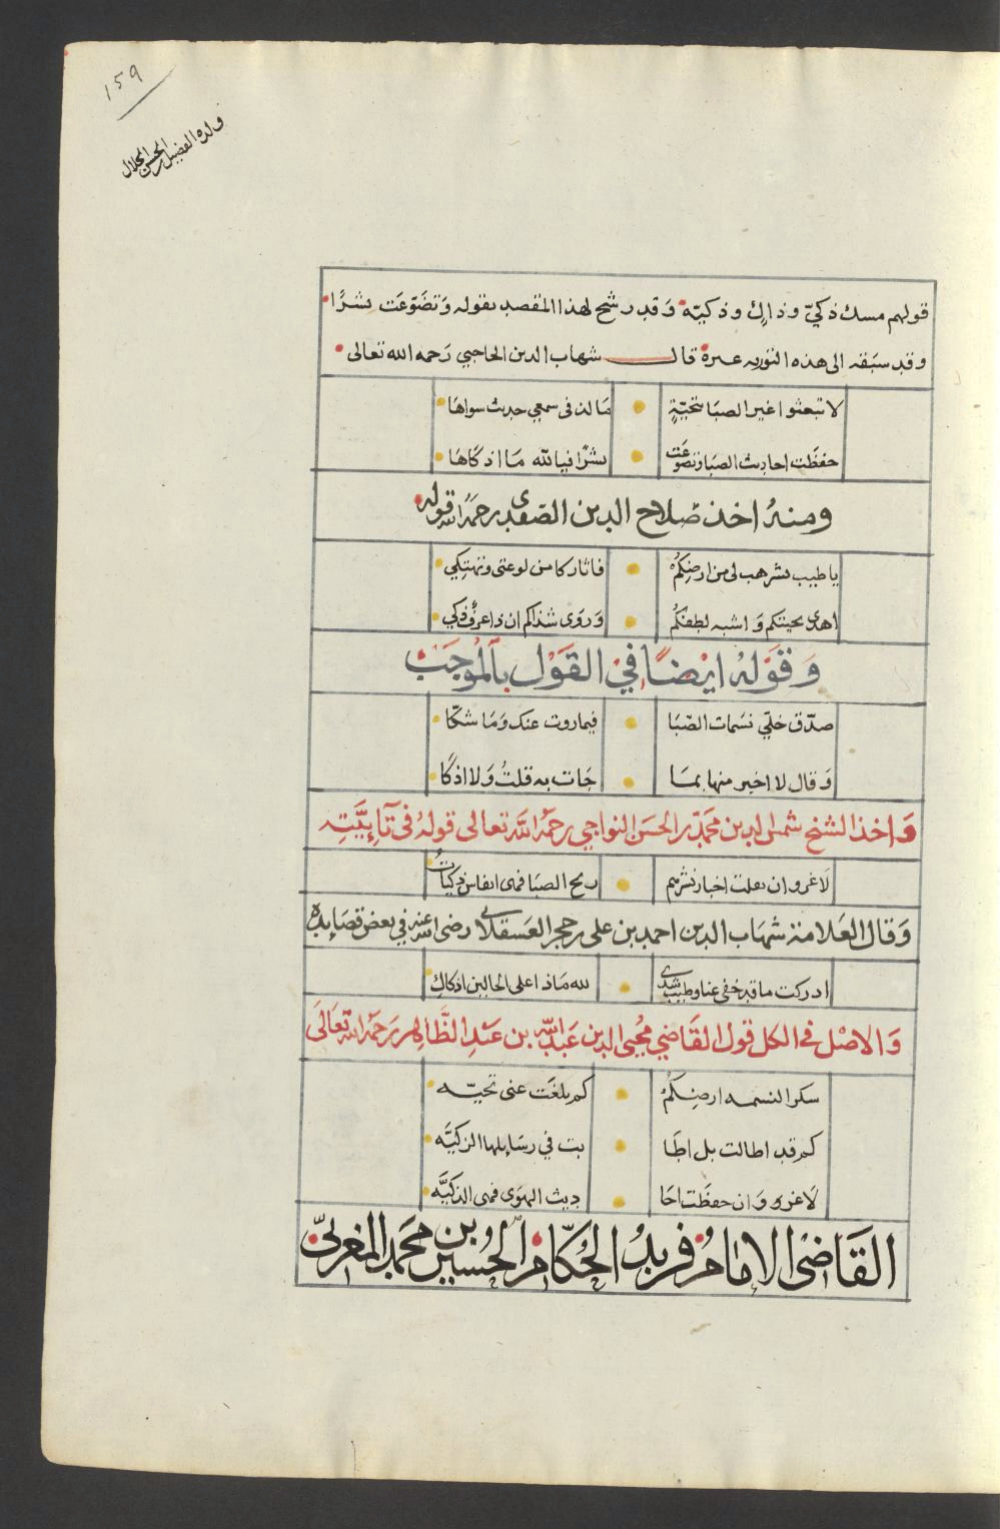 159
ولده الفضيل الحسن الجلال
قولهم مسك ذكيّ وذاك وذكيّة وَقد رشح لهذا المقصد بقوله وَتضَوّعَت نشرًا
وقد سبَقه الى هذه التوريه عدة قال شهاب الدين الحاجبي رَحمه الله تعالى
لا تبعثوا غير الصبَا بتحيّةٍ مَا لذ في سمعي حديث سواهَا
حفظَت احاديث الصبَا وتضوعَت نشرًا فيا لله مَا اذكاهَا
ومنهُ اخذ صَلاح الدين الصّفدي رحمَهُ الله قوله
يا طيب نشر هب لي من ارضِكُم فاثار كامن لوعتي وتهتكي
اهدى تحيتكم وَاشبه لطفكُم وَروَى شذاكم ان ذا عرفٌ ذكي
وَقَوْلهُ ايْضًا فِيْ القَوْل بالمُوجَبْ
صدّق خلّي نسَمات الصّبَا فيما روت عنك وَمَا شكّا
وَقال لا اخبر منها بمَا جَات به قلتُ وَلا اذكَا
وَاخذ الشيخ شمس الدين محمّد بن الحسَن النواجي رحمَهُ الله تعالى قولهُ في تآئيَّتِه
لَا غرو ان نقلت اخبار نشرهم ريح الصبَا فهى انفاس ذكيات
وَقال العَلامة شهَاب الدين احمد بن على بن حجر العَسقلاني رضى الله عنه في بعض قصَايده
ادركت ما قد خفي عنا وطيب شذى لله مَاذا على الحالين اذكاك
وَالاصْل في الكل قول القَاضي مُحيى الدين عَبد الله بن عَبْد الظَّاهِر رَحمَهُ الله تعَالَى
سكر النسمه ارضِكُمْ كم بلغَت عني تحيّه
كم قد اطالت بل اطَا بت في رسَايلها الزكيَّه
لَا غرو وَان حفظَت احَا ديث الهوَى فهى الذكيَّه
القَاضى الامَامُ فريدُ الحُكّام الحُسين بن محَمد المغربيّ